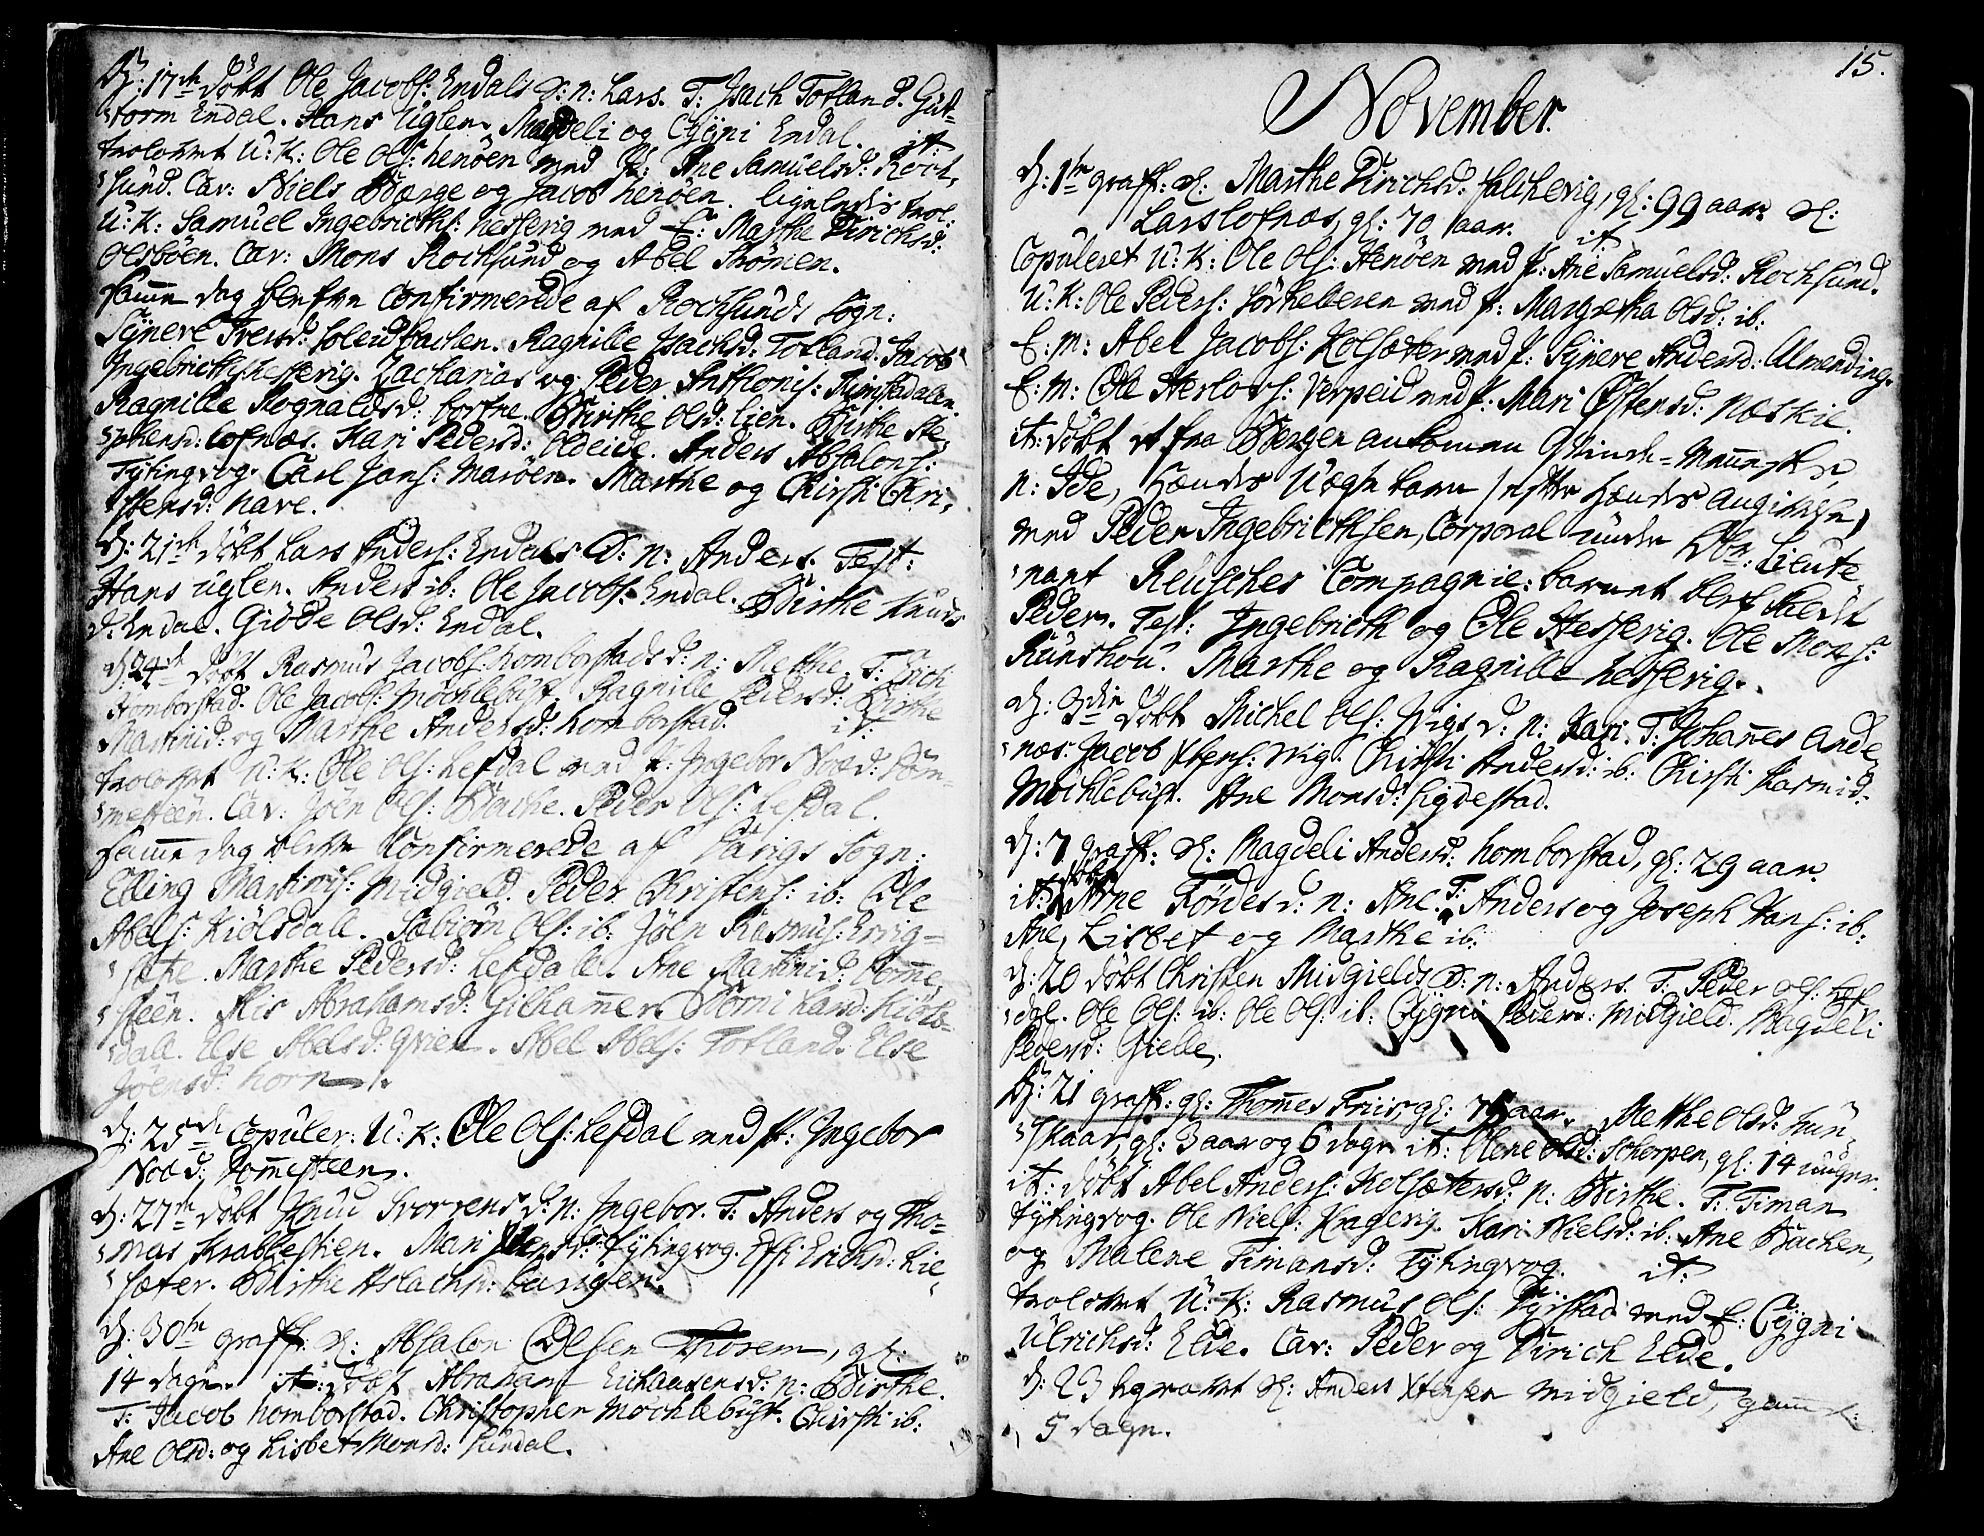 D: 17de döbt Ole Jacobs: Endals D: n: Lars. T: Isach Totland. Gut-
torm Endal. Hans Uglen. Magdeli og Cygni Endal. it:
trolovet U: K: Ole Ols: henöen med P: Ane Samuelsd: Roch-
sund. Cav: Niels Berge og Jacob henöen. ligeledes trol:
U: K: Samuel Ingebrichts: hessevig med f: Marthe Dirichsd:
Oldböen. Cav: Mons Rochsund og Abel Strömen.
samme dag blefve Confirmerede af Rochsunds Sogn:
Synere Iversd: Soleidbachen. Ragnille Isachsd: Totland. Jacob
Ingebrichts: hessevig. Zacharias og Peder Anthonis: Rimstadalen.
Ragnille Rognaldsd: bortne. Birthe Olsd: lien. Birthe Ste-
phensd: lofnæs. Kari Pedersd: Oldeide. Anders Absalons:
Tytingvog. Carl Jans: Maröen. Marthe og Chirsti Chri-
stensd: Nave.
D: 21de döbt Lars Anders: Endals D: n: Anders. Test:
Hans Uglen. Anders ib: Ole Jacobs: Endal. Birthe Knuds
d: Endal. Giöde Olsd: Endal.
D: 24de döbt Rasmus Jacobs: homborstads d: n: Methe. T: Erich
homborstad. Ole Jacobs: Mochlebust. Ragnille Pedersd: Birthe
Martinid: og Marthe Andersd: homborstad. it:
trolovet U: K: Ole Ols: Lefdal med P: Ingebor Noed: Tom-
mesteen. Cav: Jöen Ols: Bache. Peder Ols: Lefdal.
samme dag blefve Confirmerede af Vaarigs Sogn:
Elling Martinis: Midgield. Peder Christens: ib: Ole
Abels: Kiölsdal. Sabiörn Ols: ib: Jöen Rasmus: Ervig-
sete. Marthe Pedersd: Lefdal. Ane Martinid: Tomme-
steen. Alis Abrahamsd: Gilhammer. Börni Larsd: Kiöls-
dal. Else Abelsd: Qvien. Abel Abels: Totland. Else
Jöensd: horn.
D: 25de Copuler: U: K: Ole Ols: Lefdal med P: Ingebor
Noed: Tommesteen.
D: 27de döbt Knud Svorrens D: n: Ingebor. T: Anders og Tho-
mas Krabbestien. Mari Stensd: Tytingvog. Effi Erichsd: Lie-
sæter. Birthe Aslachsd: burisen.
D: 30te graff: S: Absalon Olsen Thorem, gl:
14 dage. it: döbt Abraham Eichausens d: n: Birthe.
T: Jacob homborstad. Christopher Mochlebust. Chirsti ib:
Ane Olsd: og Lisbet Monsd: Sundal.
15.
November.
D: 1te graff: S: Marthe Dirichsd: falchevig, gl: 99 aar. S:
Lars lofnæs, gl: 70 aar. it:
Copuleret U: K: Ole Ols: Henöen med P: Ane Samuelsd: Rochsund.
U: K: Ole Peders: Torhelleren med P: Margretha Olsd: ib:
E: M: Abel Jacobs: Kolsæter med P: Synere Andersd: Almending.
E: M: Ole Herlovs: Verpeid med P: Mari Östensd: Næskie.
it: döbt et fra Bergen ankommen Qvinde-Menneske
n: Ide, hendes Uægte barn / efter hendes angivelse /
med Peder Ingebrichtsen, Corporal under Obr: Lieute-
nant Reusches Compagnie: barnet blef kaldt
Peder. Test: Ingebricth og Ole Hessevig. Ole Mons:
Runshou. Marthe og Ragnille hessevig.
D: 3die döbt Michel Ols: Vigs D: n: Kari. T: Johannes Ande-
næs. Jacob Xstens: Wig. Chirsti Andersd: ib: Chirsti Rasmid:
Mochlebust. Ane Monsd: Sigdestad.
D: 7 graff: S: Magdeli Andersd: homborstad, gl: 29 aar.
it: döbt Arne Förde s: n: Ane. T: Anders og Joseph Hans: ib:
Ane, Lisbet og Marthe ib:
D: 20 döbt Christen Midgields D: n: Anders. T: Peder Ols: Lef-
dal. Ole Ols: ib: Ole Ols: ib: Cygni Peders: Midgield. Magdeli
Pedersd: Gielle.
D: 21 graff: gl: Thomes Friis gl: 75 aar. Methe Olsd: hun-
skaar, gl: 3 aar og 6 dage it: Olene Olsd: Scherpen, gl: 14 uuger.
it: döbt Abel Anders: Kolsæters d: n: Birthe. T: Timan
Tytingvog. Ole Niels: Kragevig. Kari Nielsd: ib: Ane Bachen,
og Malene Timansd: Tytingvog. it:
trolovet U: K: Rasmus Ols: Ryrstad med f: Cygni
Ulrichsd: Elde. Cav: Peder og Dirich Elde.
D: 23 begravet S: Anders Xstensen Midgield, gamm:
5 dage.